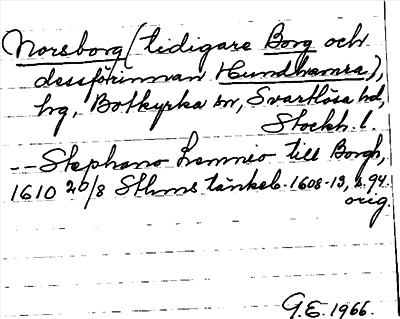 Norsborg (tidigare Borg och
dessförinnan Hundhamra),
hg, Botkyrka sn, Svartlösa hd,
Stockh. l.
-- Stephano Lemnio till Borgh,
1610 20/8 Sthms tänkeb. 1608-13, s. 94.
orig
G.E. 1966.